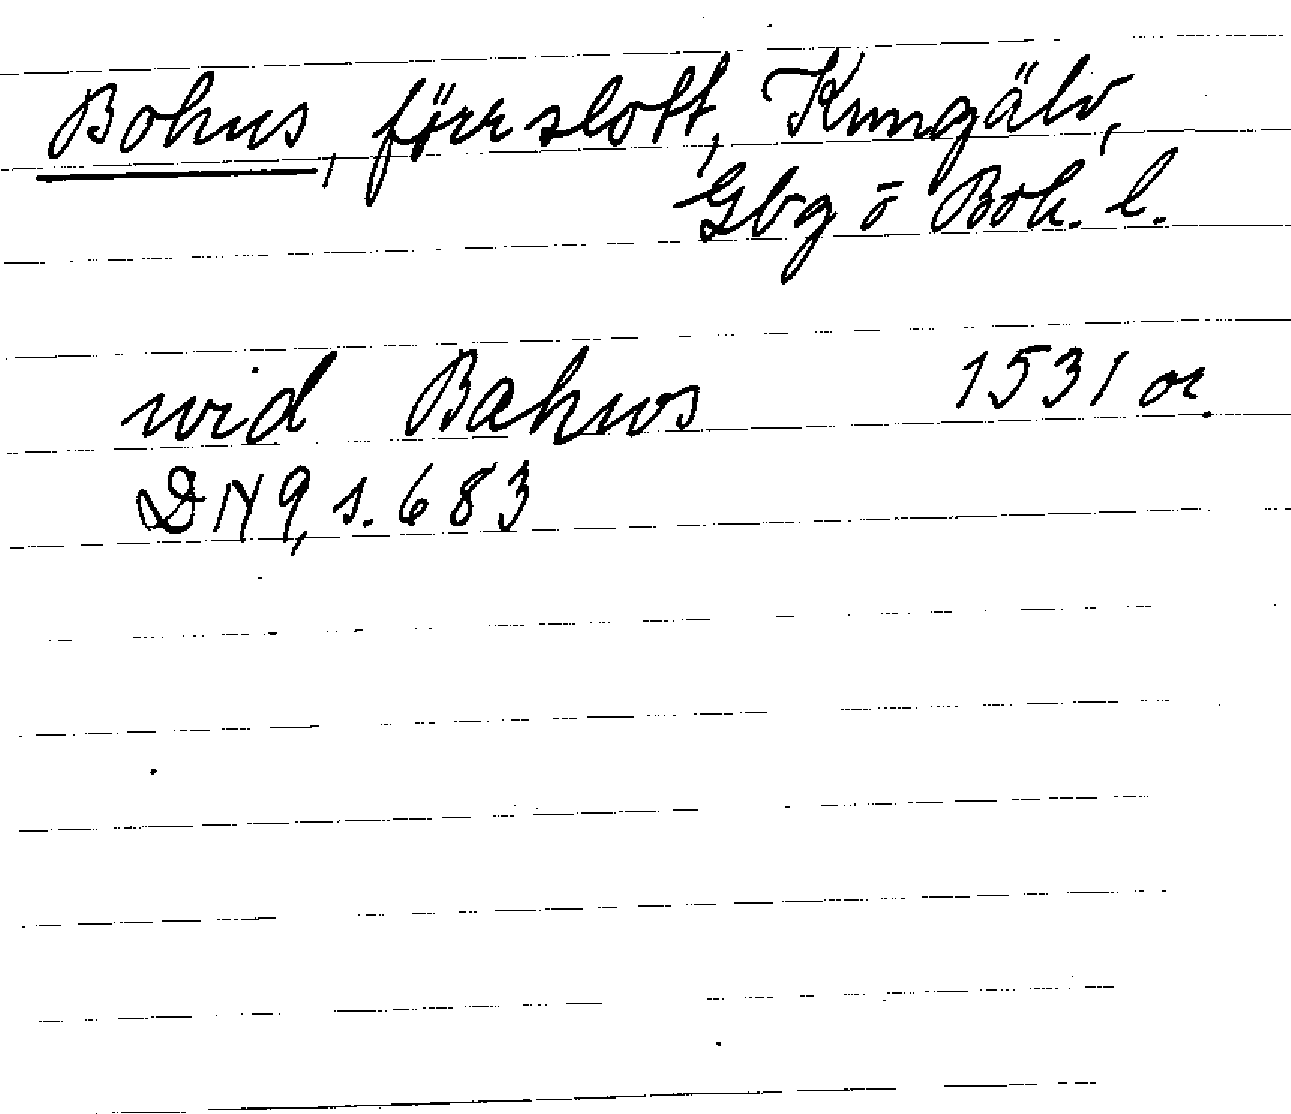 Bohus, förr slott, Kungälv,
Gbg o Boh. l.
wid Bahws 1531 or.
DN 9, s. 683